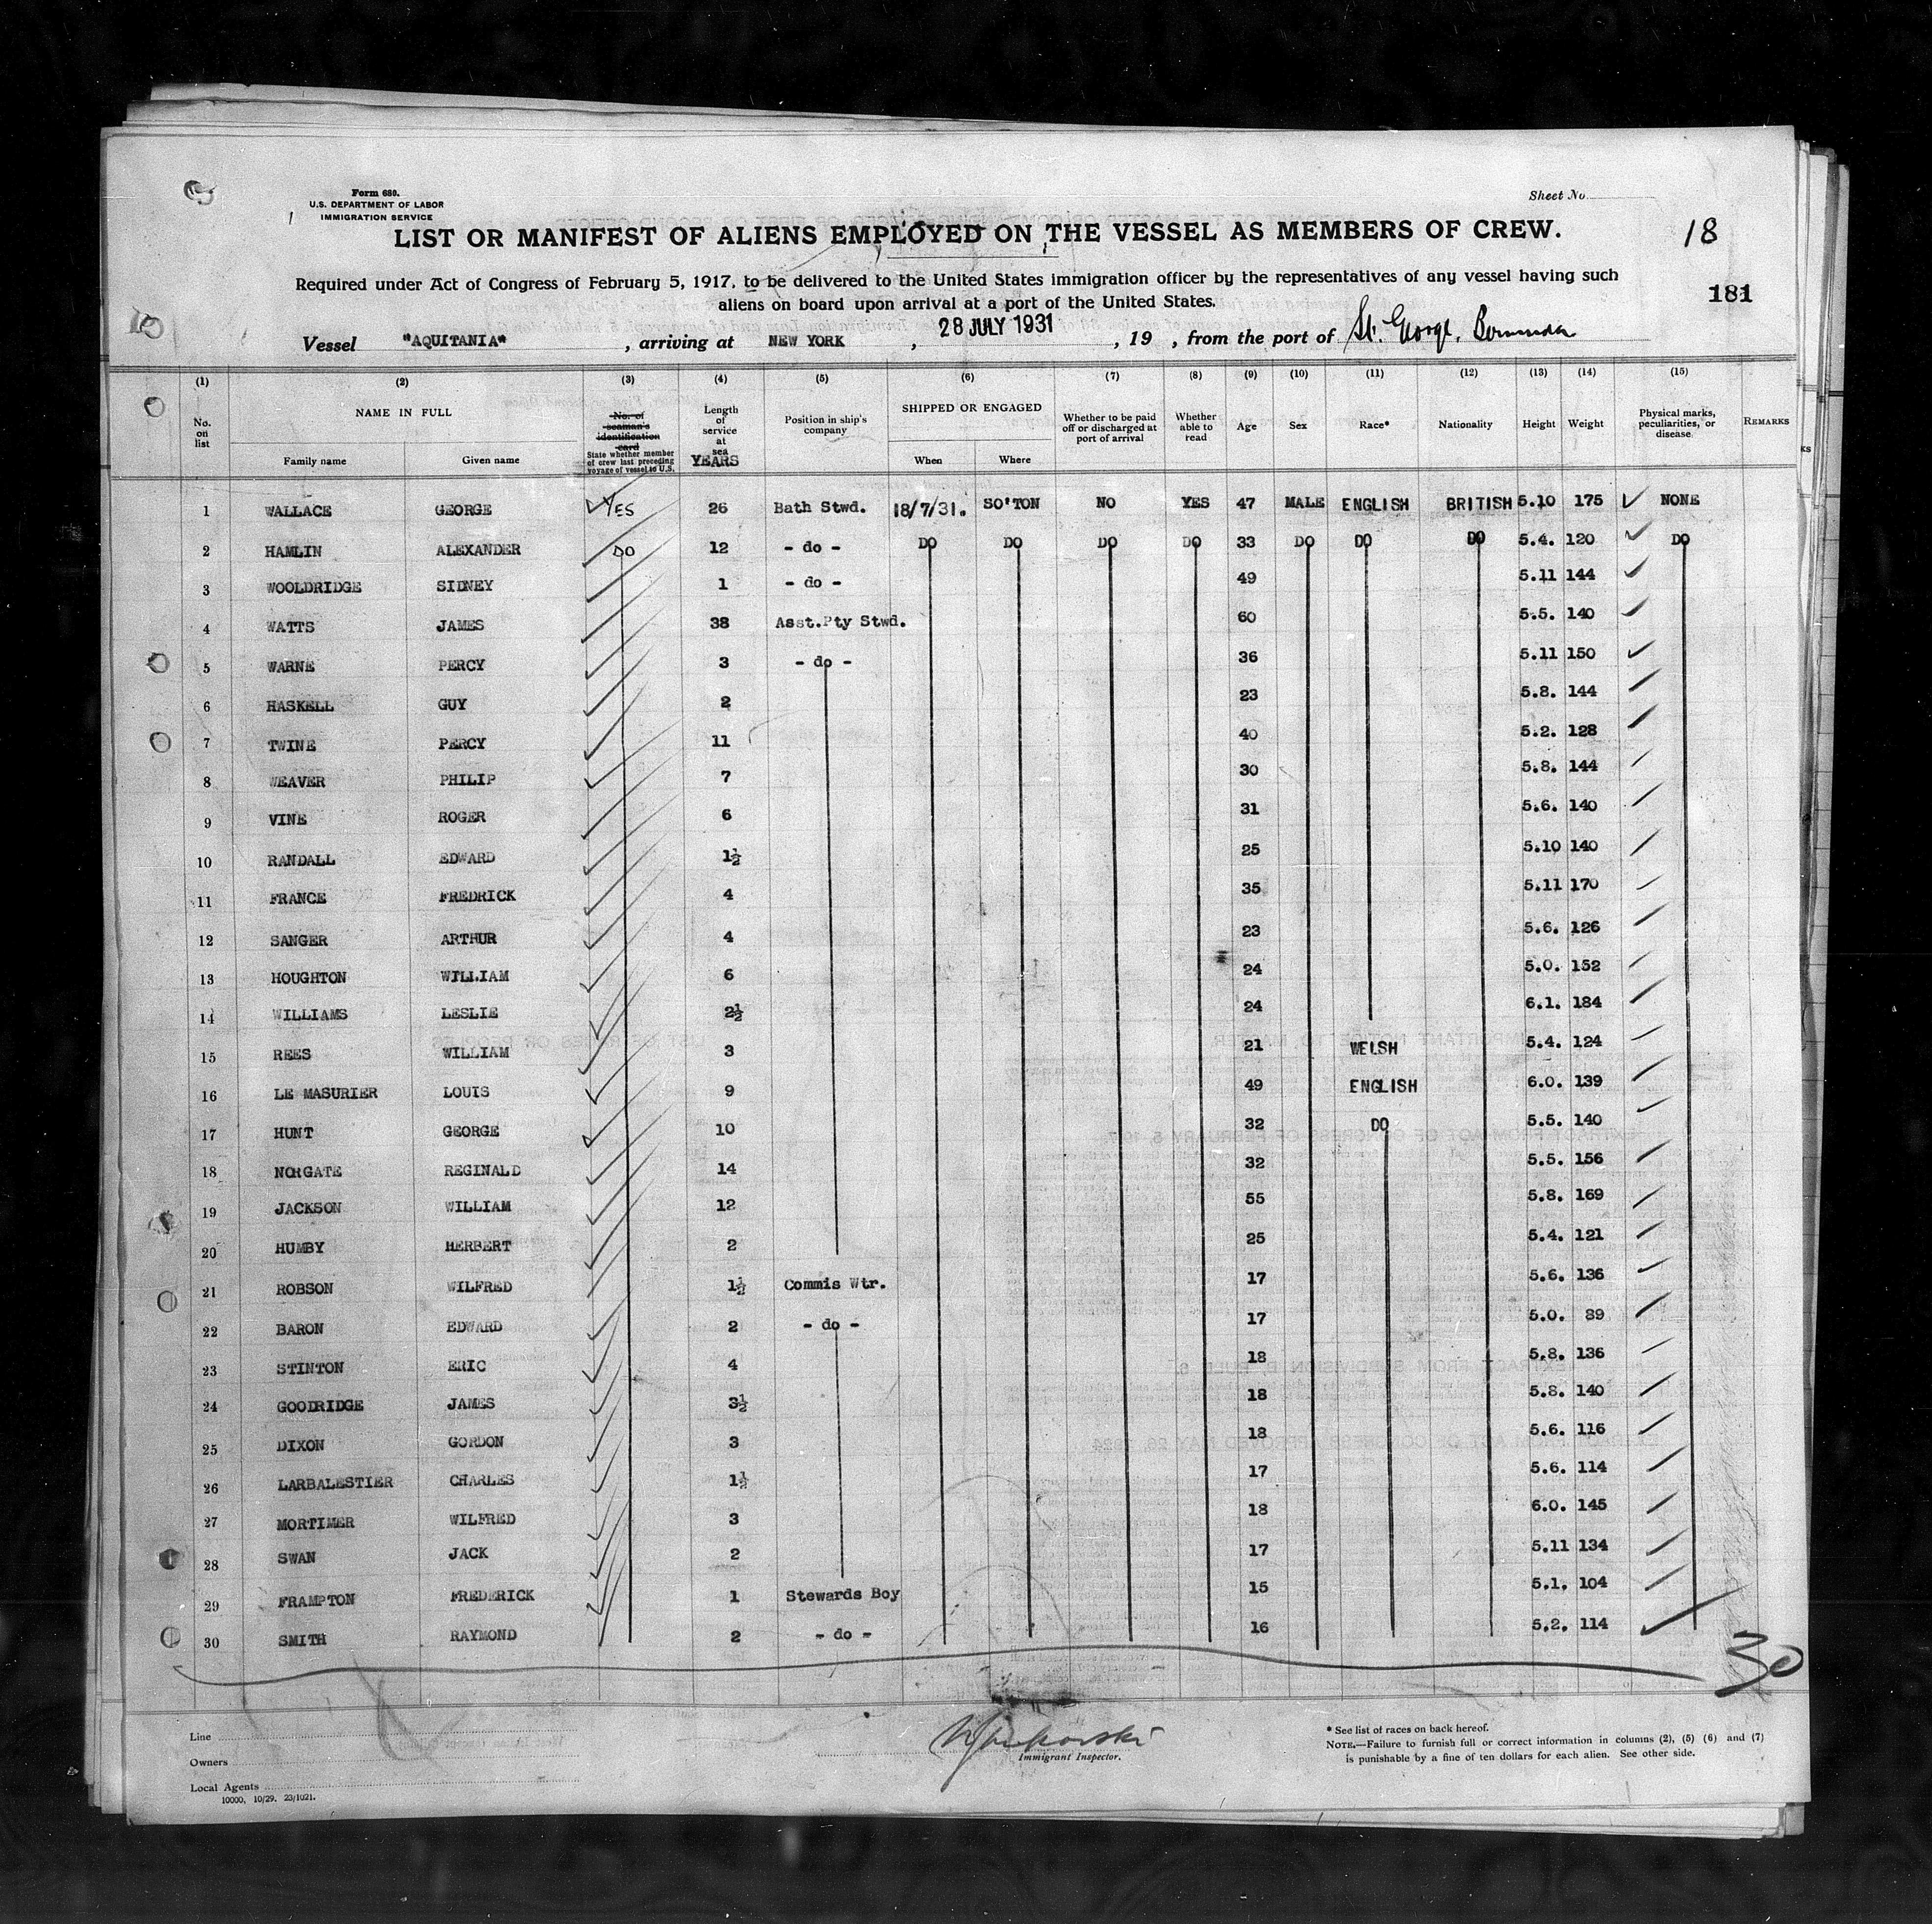 Form 680.
U.S. DEPARTMENT OF LABOR
IMMIGRATION SERVICE
Sheet No.
LIST OR MANIFEST OF ALIENS EMPLOYED ON THE VESSEL AS MEMBERS OF CREW.
18
Required under Act of Congress of February 5, 1917, to be delivered to the United States immigration officer by the representatives of any vessel having such
aliens on board upon arrival at a port of the United States.
181
Vessel "AQUITANIA" , arriving at NEW YORK , 28 JULY 1931 , 19 , from the port of St. George, Bermuda
(1) (2) (3) (4) (5) (6) (7) (8) (9) (10) (11) (12) (13) (14) (15)
No. on list NAME IN FULL Family name Given name No. of seaman's identification card State whether member of crew last preceding voyage of vessel to U.S. Length of service at sea YEARS Position in ship's company SHIPPED OR ENGAGED When Where Whether to be paid off or discharged at port of arrival Whether able to read Age Sex Race* Nationality Height Weight Physical marks, peculiarities, or disease REMARKS
1 WALLACE GEORGE YES 26 Bath Stwd. 18/7/31. SO'TON NO YES 47 MALE ENGLISH BRITISH 5.10 175 NONE
2 HAMLIN ALEXANDER DO 12 - do - DO DO DO DO 33 DO DO DO 5.4. 120 DO
3 WOOLDRIDGE SIDNEY 1 - do - 49 5.11 144
4 WATTS JAMES 38 Asst.Pty Stwd. 60 5.5. 140
5 WARNE PERCY 3 - do - 36 5.11 150
6 HASKELL GUY 2 23 5.8. 144
7 TWINE PERCY 11 40 5.2. 128
8 WEAVER PHILIP 7 30 5.8. 144
9 VINE ROGER 6 31 5.6. 140
10 RANDALL EDWARD 1½ 25 5.10 140
11 FRANCE FREDRICK 4 35 5.11 170
12 SANGER ARTHUR 4 23 5.6. 126
13 HOUGHTON WILLIAM 6 24 5.0. 152
14 WILLIAMS LESLIE 2½ 24 6.1. 184
15 REES WILLIAM 3 21 WELSH 5.4. 124
16 LE MASURIER LOUIS 9 49 ENGLISH 6.0. 139
17 HUNT GEORGE 10 32 DO 5.5. 140
18 NORGATE REGINALD 14 32 5.5. 156
19 JACKSON WILLIAM 12 55 5.8. 169
20 HUMBY HERBERT 2 25 5.4. 121
21 ROBSON WILFRED 1½ Commis Wtr. 17 5.6. 136
22 BARON EDWARD 2 - do - 17 5.0. 89
23 STINTON ERIC 4 18 5.8. 136
24 GOODRIDGE JAMES 3½ 18 5.8. 140
25 DIXON GORDON 3 18 5.6. 116
26 LARBALESTIER CHARLES 1½ 17 5.6. 114
27 MORTIMER WILFRED 3 18 6.0. 145
28 SWAN JACK 2 17 5.11 134
29 FRAMPTON FREDERICK 1 Stewards Boy 15 5.1. 104
30 SMITH RAYMOND 2 - do - 16 5.2. 114
30
Line
Owners
Local Agents
10000, 10/29. 23/1021.
Immigrant Inspector.
* See list of races on back hereof.
NOTE.—Failure to furnish full or correct information in columns (2), (5) (6) and (7)
is punishable by a fine of ten dollars for each alien. See other side.